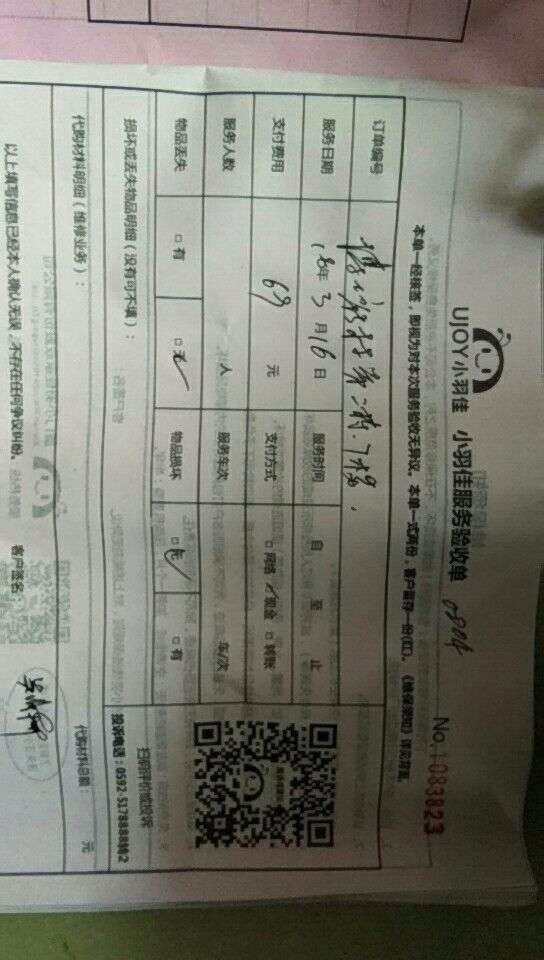 UJOY小羽佳 小羽佳服务验收单 0804
No.1083823
本单一经核签，即视为对本次服务验收无异议。本单一式两份，客户留存一份(红)。《维保须知》详见背面。
订单编号
服务日期 18年3月16日 服务时间 自 至 止
支付费用 69 元 支付方式 □网络 ✓现金 □转账
服务人数 人 服务车次 车/次
物品丢失 □有 □无✓ 物品损坏 □无✓ □有
扫码评价或投诉
投诉电话：0592-5178888转2
损坏或丢失物品明细（没有可不填）：
代购材料明细（维修业务）：
代购材料总额： 元
以上填写信息已经本人确认无误，不存在任何争议纠纷。 客户签名：